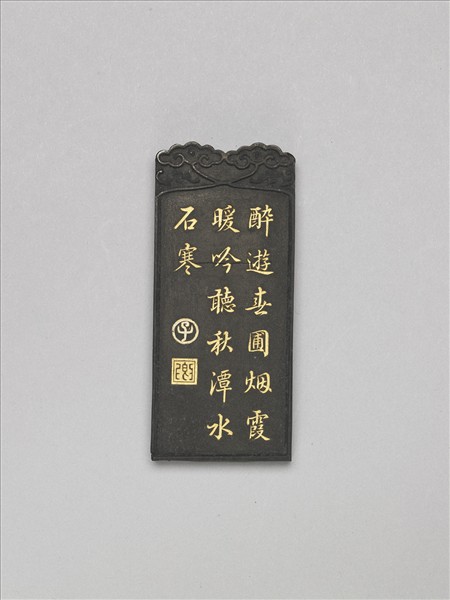 醉遊春圃烟霞
暖吟聽秋潭水
石寒
子